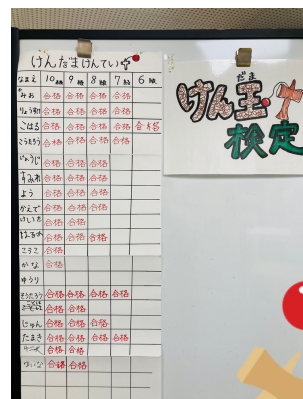 けんだまけんてい
なまえ 10級 9級 8級 7級 6級
みお 合格 合格 合格 合格
合格 合格 合格 合格
こはる 合格 合格 合格 合格 合格
こうたろう 合格 合格 合格 合格
合格 合格 合格
すみれ 合格 合格 合格
よう 合格 合格 合格
かえで 合格 合格 合格
けいた 合格 合格
合格 合格 合格
こうこ 合格
かな 合格
ゆうり
合格 合格 合格 合格
合格 合格
じゅん 合格 合格 合格
たまき 合格 合格 合格 合格
合格 合格
合格 合格
だま
けん玉
検定